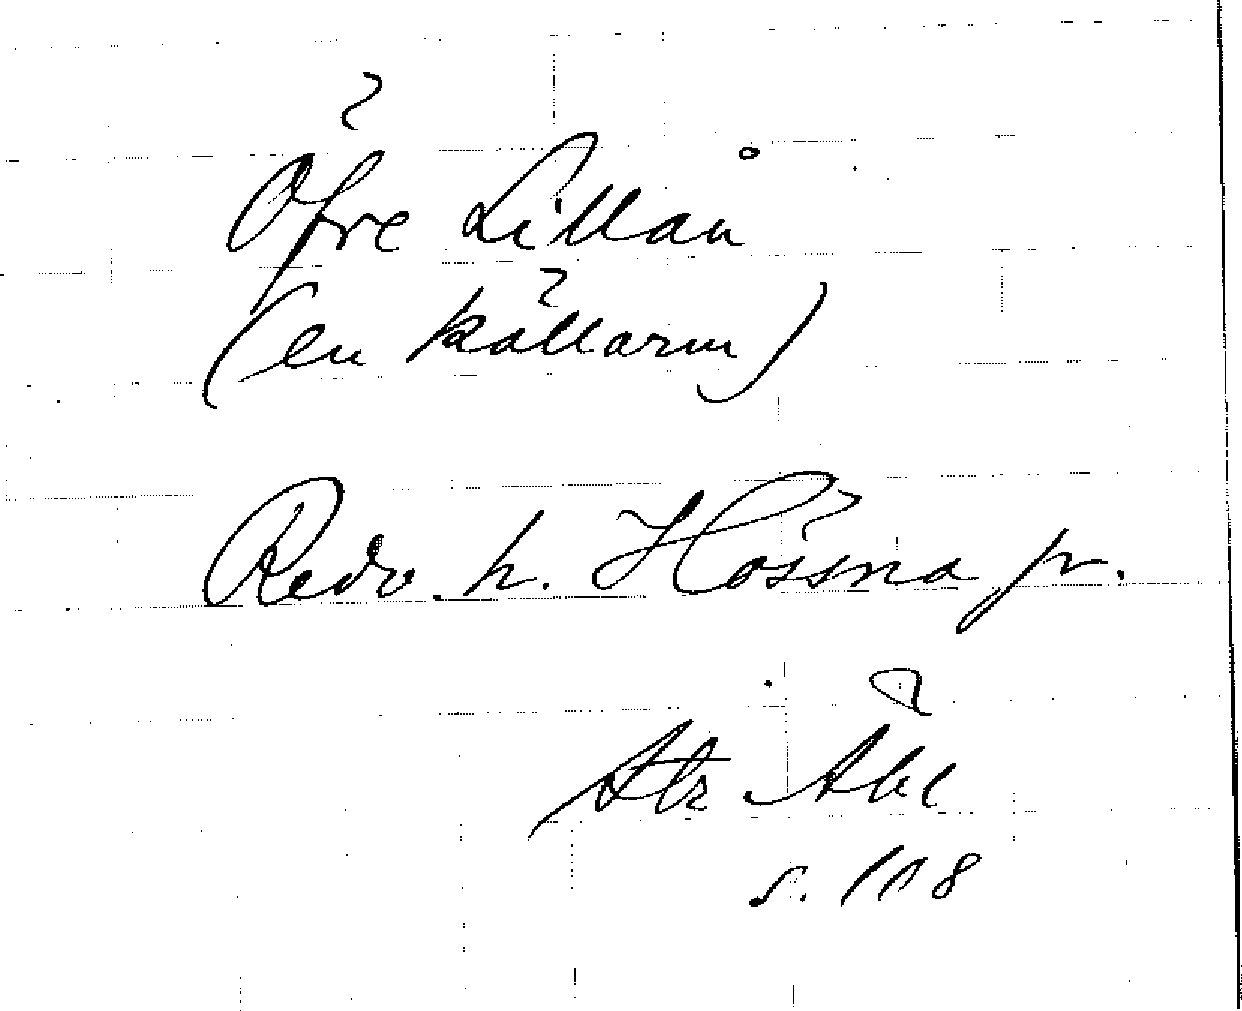 Öfre Lillån
(en källarm)
Redv. h. Hössna pr.
s. 108